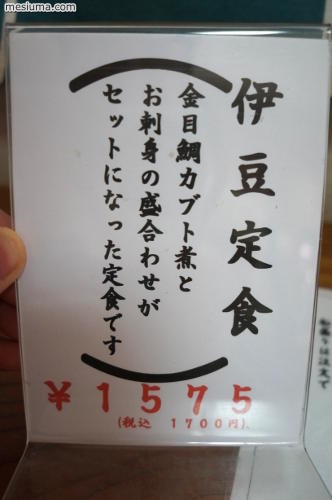 mesluma.com
伊豆定食
金目鯛カブト煮と
お刺身の盛合わせが
セットになった定食です
¥1575
(税込 1700円)